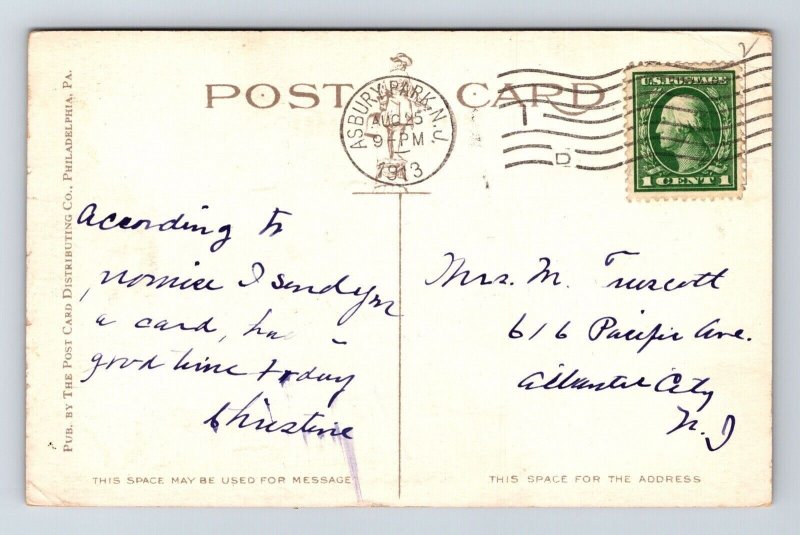 POST CARD
ASBURY PARK, N.J.
AUG 25
9 PM
1913
T
D
U.S. POSTAGE
1 CENT 1
PUB. BY THE POST CARD DISTRIBUTING CO., PHILADELPHIA, PA.
According to
promise I send you
a card,
good time today
Christine
Mrs. M. Truscott
616 Pacific Ave.
Atlantic City
N. J
THIS SPACE MAY BE USED FOR MESSAGE
THIS SPACE FOR THE ADDRESS